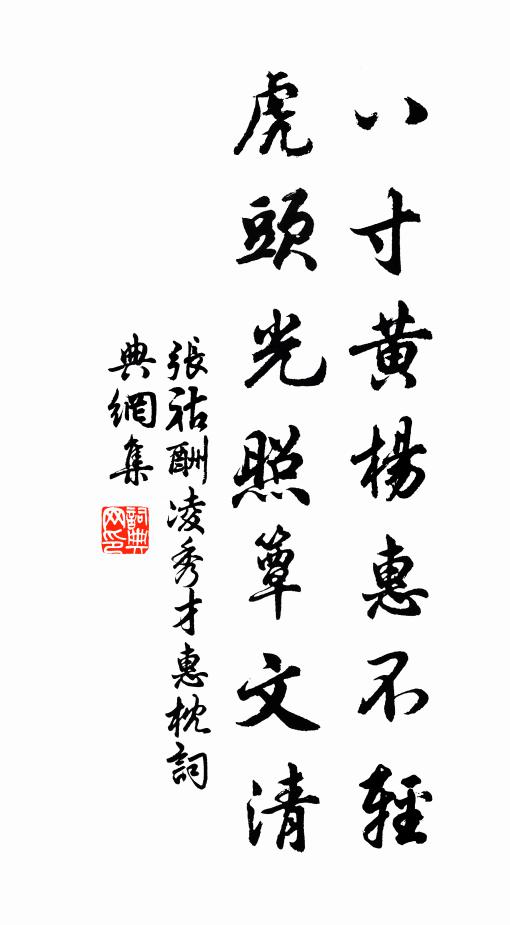 八寸黃楊惠不輕
虎頭光照簟文清
張祜酬凌秀才惠枕詞
典網集
詞典網印